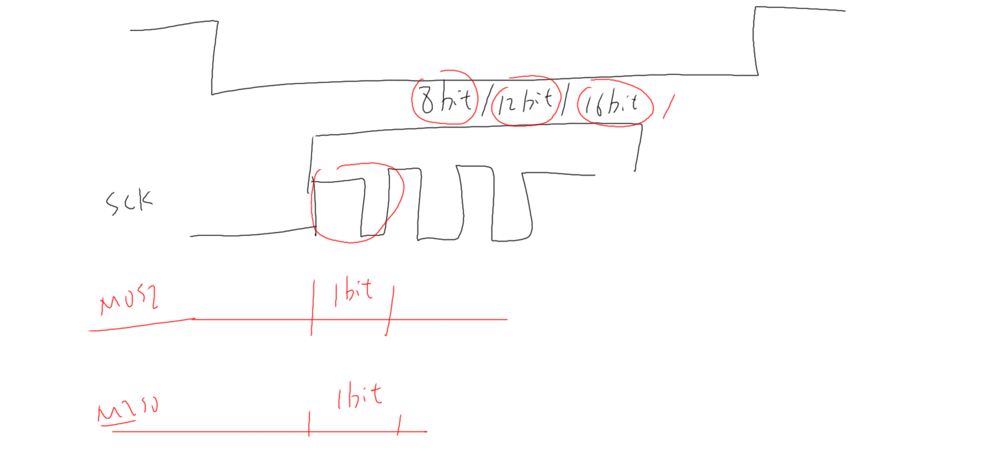 8bit/12bit/16bit/
SCK
MOSI
1bit
MISO
1bit